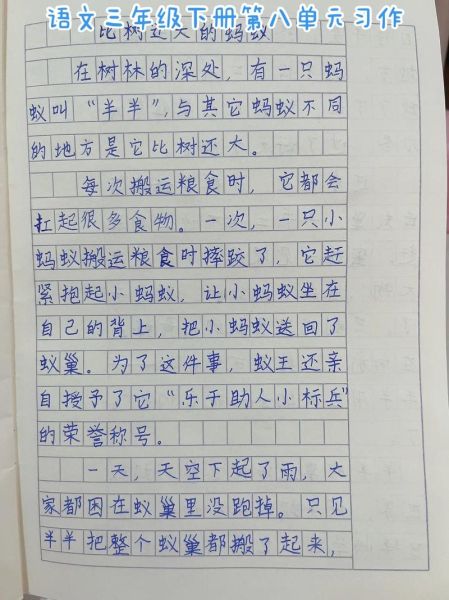 语文三年级下册第八单元习作
比树还大的蚂蚁
在树林的深处，有一只蚂
蚁叫“半半”，与其它蚂蚁不同
的地方是它比树还大。
每次搬运粮食时，它都会
扛起很多食物。一次，一只小
蚂蚁搬运粮食时摔跤了，它赶
紧抱起小蚂蚁，让小蚂蚁坐在
自己的背上，把小蚂蚁送回了
蚁巢。为了这件事，蚁王还亲
自授予了它“乐于助人小标兵”
的荣誉称号。
一天，天空下起了雨，大
家都困在蚁巢里没跑掉。只见
半半把整个蚁巢都搬了起来，